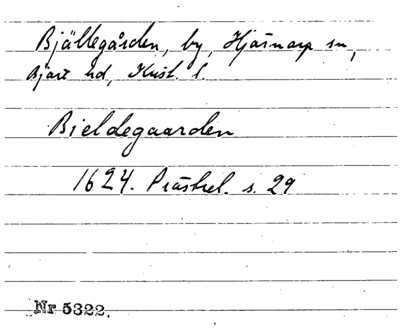 Bjällegården, by, Hjärnarp sn,
Bjäre hd, Krist. l.
Bieldegaarden
1624. Prästrel. s. 29
Nr 5322.